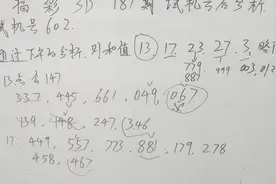 福彩3D 187期试机号后分析
试机号602.
通过下午的分析, 则和值 13, 17 23 27. 3, 略
779 999 003, 012
13点 147 881
337, 445, 661, 049, 067
139, 148 247, 346
17. 449, 557, 773, 881, 179, 278
458, 467